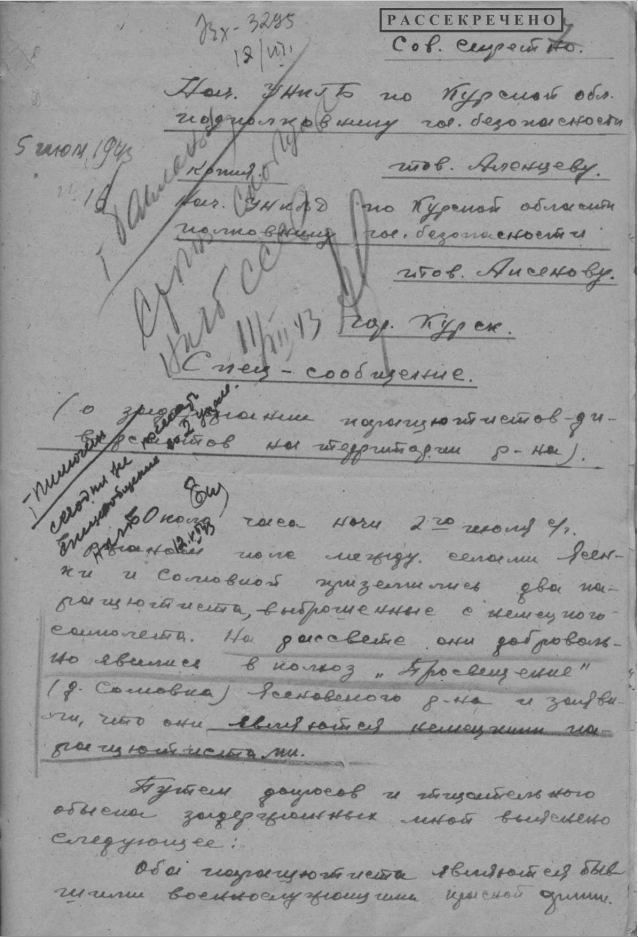 Вх-3295
РАССЕКРЕЧЕНО
Сов. секретно.
18/VII.
Нач. УНКГБ по Курской обл.
подполковнику гос. безопасности
5 июля 1943
тов. Аленцеву.
Копия:
Нач. УНКВД по Курской области
полковнику гос. безопасности
тов. Аксенову.
НКГБ СССР
11/VII 43
гор. Курск.
Спец-сообщение.
(о задержании парашютистов-ди-
версантов на территории р-на).
12.VII.43
Около часа ночи 2го июля с/г.
в ржаном поле между селами Ясен-
ки и Соловкой приземлились два па-
рашютиста, выброшенные с немецкого
самолета. На рассвете они доброволь-
но явились в колхоз „Просвещение"
(д. Соловка) Ясеновского р-на и заяви-
ли, что они являются немецкими па-
рашютистами.
Путем допросов и тщательного
обыска задержанных мной выяснено
следующее:
Оба парашютиста являются быв
шими военнослужащими красной армии.